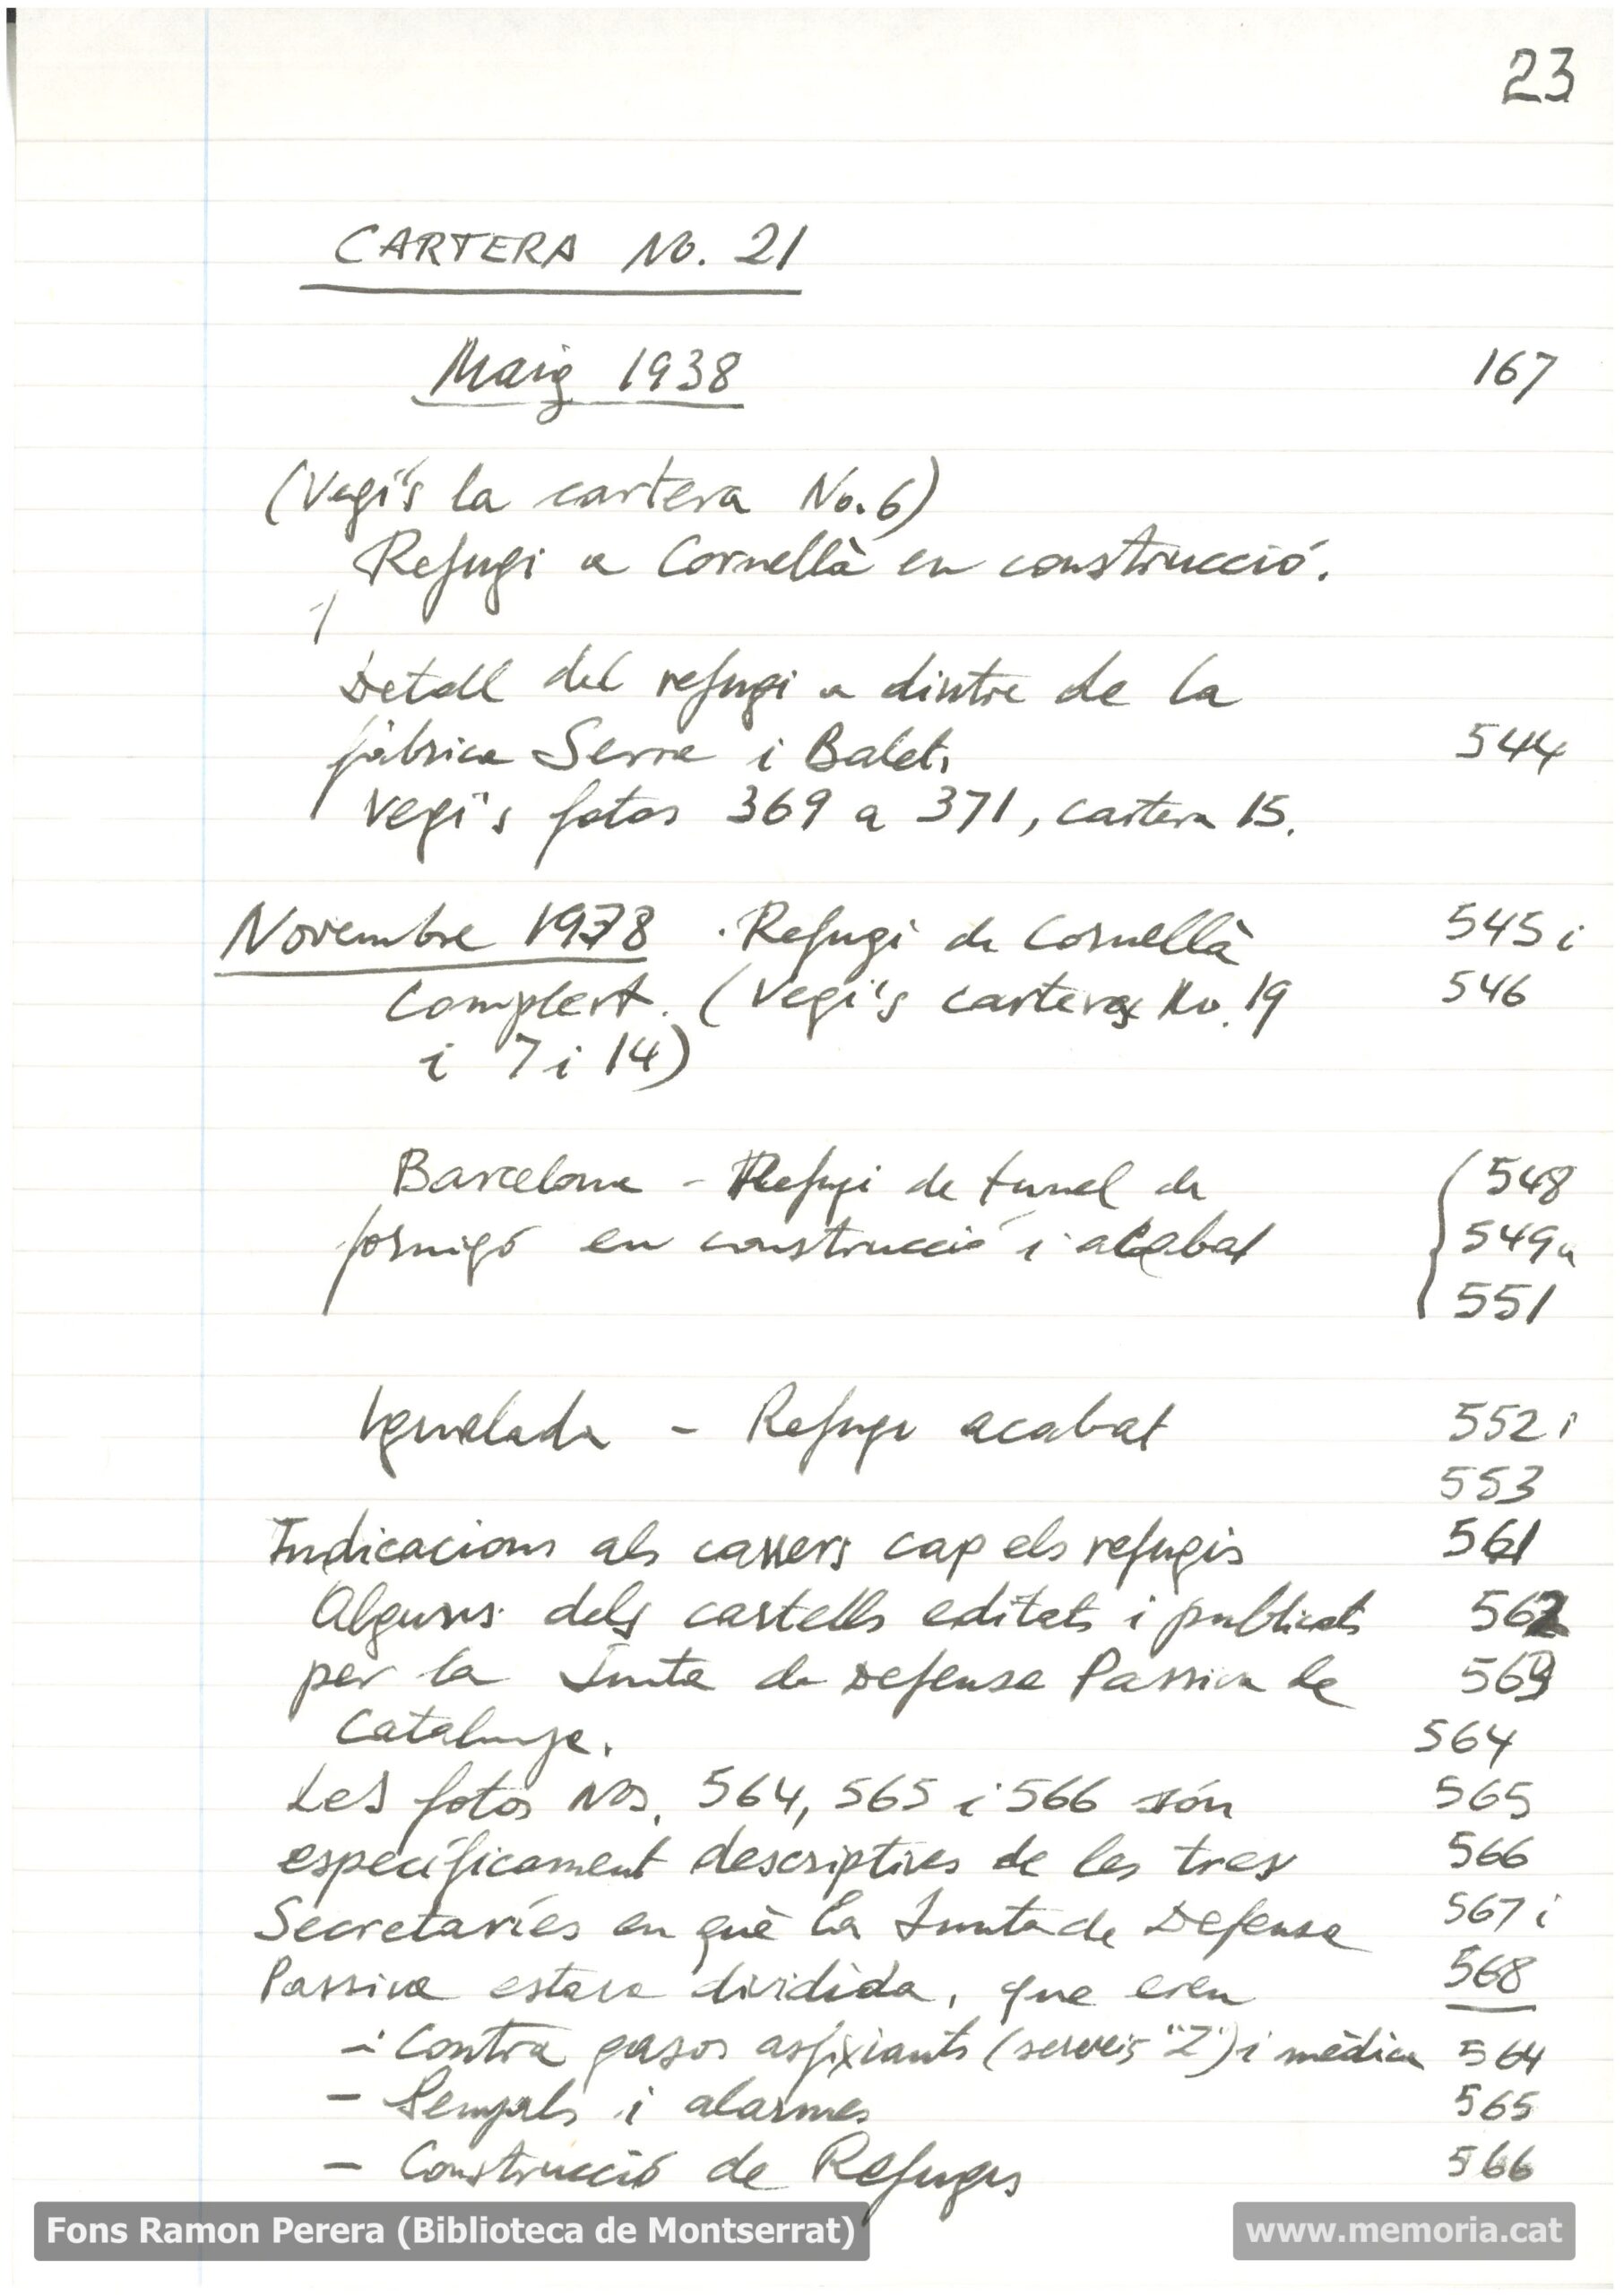 23
CARTERA No. 21
Maig 1938 167
(Vegi's la cartera No. 6)
Refugi a Cornellà en construcció.
Detall del refugi a dintre de la
fàbrica Serra i Balet. 544
Vegi's fotos 369 a 371, cartera 15.
Novembre 1938 · Refugi de Cornellà 545 i
Complert. (Vegi's carteres No. 19 546
i 7 i 14)
Barcelona - Refugi de tunel de 548
formigó en construcció i acabat 549 a
551
Igualada - Refugi acabat 552 i
553
Indicacions als carrers cap els refugis 561
Alguns dels cartells editats i publicats 562
per la Junta de Defensa Passiva de 563
Catalunya. 564
Les fotos Nos. 564, 565 i 566 són 565
específicament descriptives de les tres 566
Secretaríes en què la Junta de Defensa 567 i
Passiva estava dividida, que eren 568
- Contra gasos asfixiants (serveis "Z") i mèdica 564
- Senyals i alarmes 565
- Construcció de Refugis 566
Fons Ramon Perera (Biblioteca de Montserrat)
www.memoria.cat